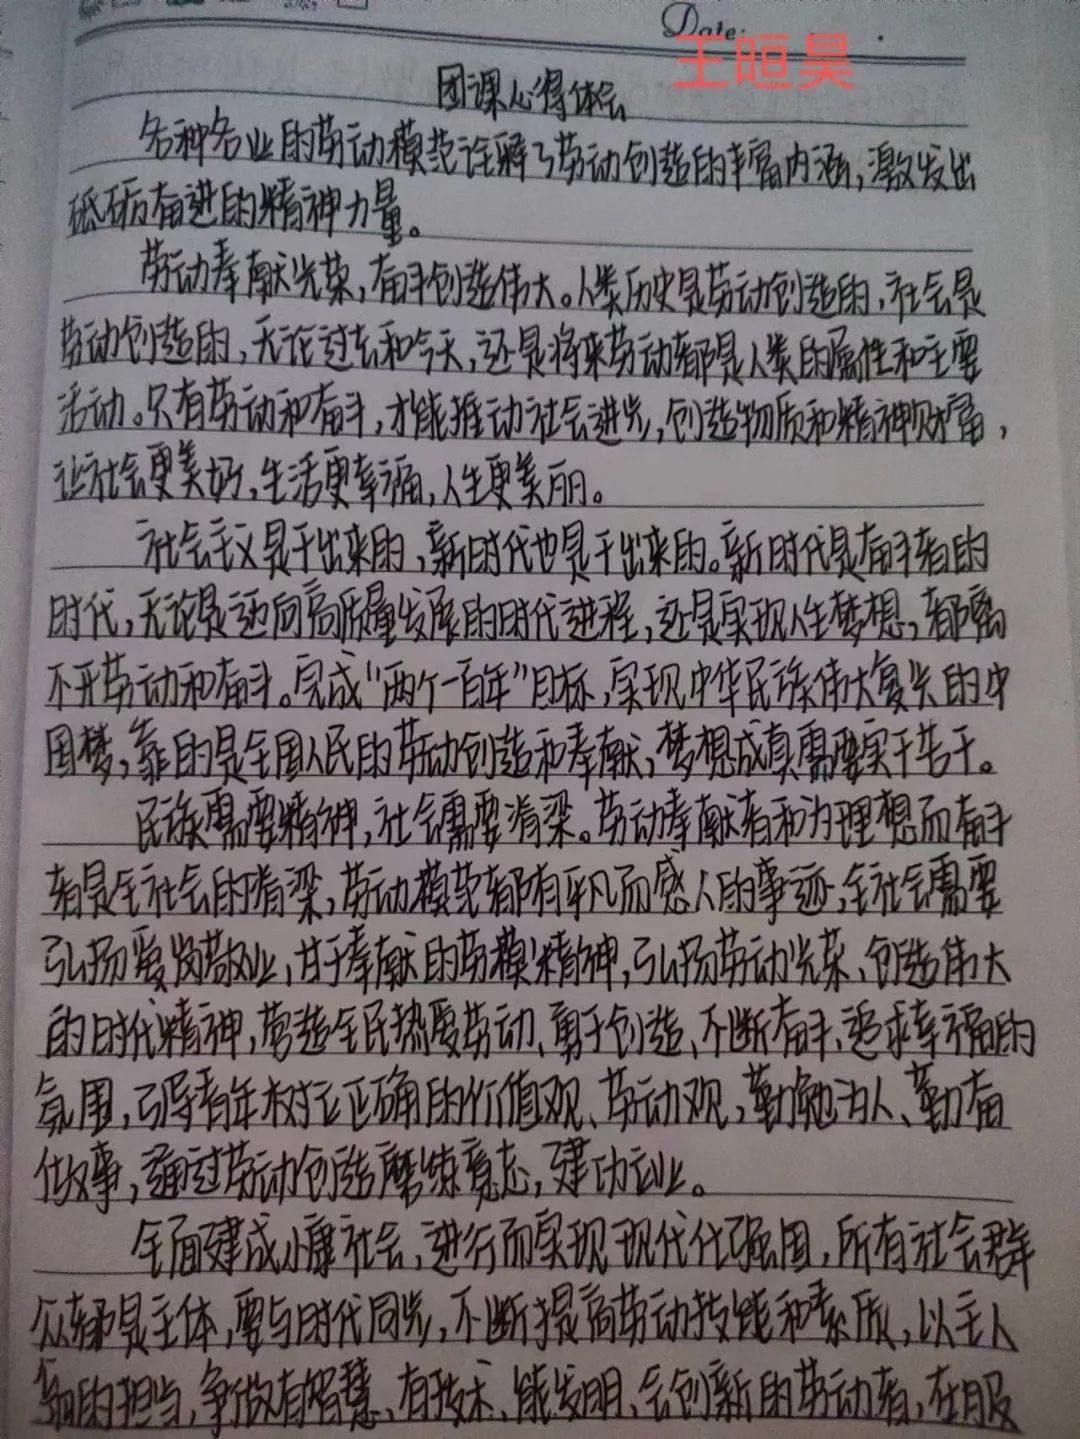 Date:
王晅昊
团课心得体会
各种各业的劳动模范诠释了劳动创造的丰富内涵,激发出
砥砺奋进的精神力量。
劳动奉献光荣,奋斗创造伟大。人类历史是劳动创造的,社会是
劳动创造的,无论过去和今天,还是将来劳动都是人类的属性和主要
活动。只有劳动和奋斗,才能推动社会进步,创造物质和精神财富,
让社会更美好,生活更幸福,人生更美丽。
社会主义是干出来的,新时代也是干出来的。新时代是奋斗者的
时代,无论是迈向高质量发展的时代进程,还是实现人生梦想,都离
不开劳动和奋斗。完成"两个一百年"目标,实现中华民族伟大复兴的中
国梦,靠的是全国人民的劳动创造和奉献,梦想成真需要实干苦干。
民族需要精神,社会需要脊梁。劳动奉献者和为理想而奋斗
者是全社会的脊梁,劳动模范都有平凡而感人的事迹,全社会需要
弘扬爱岗敬业,甘于奉献的劳模精神,弘扬劳动光荣、创造伟大
的时代精神,营造全民热爱劳动、勇于创造、不断奋斗、追求幸福的
氛围,引导青年树立正确的价值观、劳动观,勤勉为人、勤奋
做事,通过劳动创造磨练意志,建功立业。
全面建成小康社会,进行而实现现代代强国,所有社会群
众都是主体,要与时代同步,不断提高劳动技能和素质,以主人
翁的担当,争做有智慧、有技术、能发明、会创新的劳动者,在服